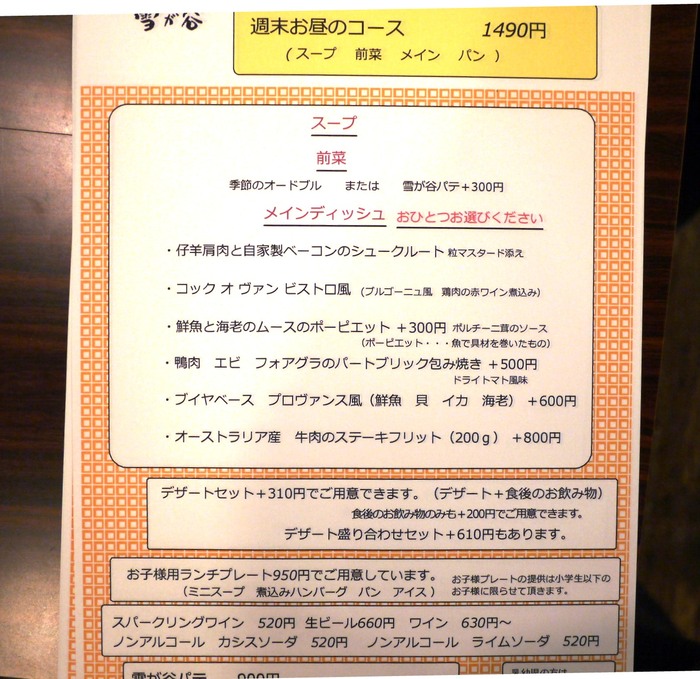 雪が谷
週末お昼のコース 1490円
( スープ 前菜 メイン パン )
スープ
前菜
季節のオードブル または 雪が谷パテ+300円
メインディッシュ おひとつお選びください
・仔羊肩肉と自家製ベーコンのシュークルート 粒マスタード添え
・コック オ ヴァン ビストロ風 (ブルゴーニュ風 鶏肉の赤ワイン煮込み)
・鮮魚と海老のムースのポーピエット +300円 ポルチーニ茸のソース
(ポーピエット・・・魚で具材を巻いたもの)
・鴨肉 エビ フォアグラのパートブリック包み焼き +500円
ドライトマト風味
・ブイヤベース プロヴァンス風(鮮魚 貝 イカ 海老) +600円
・オーストラリア産 牛肉のステーキフリット(200g) +800円
デザートセット+310円でご用意できます。(デザート+食後のお飲み物)
食後のお飲み物のみも+200円でご用意できます。
デザート盛り合わせセット+610円もあります。
お子様用ランチプレート950円でご用意しています。 お子様プレートの提供は小学生以下の
(ミニスープ 煮込みハンバーグ パン アイス) お子様に限らせて頂きます。
スパークリングワイン 520円 生ビール660円 ワイン 630円～
ノンアルコール カシスソーダ 520円 ノンアルコール ライムソーダ 520円
雪が谷パテ 900円